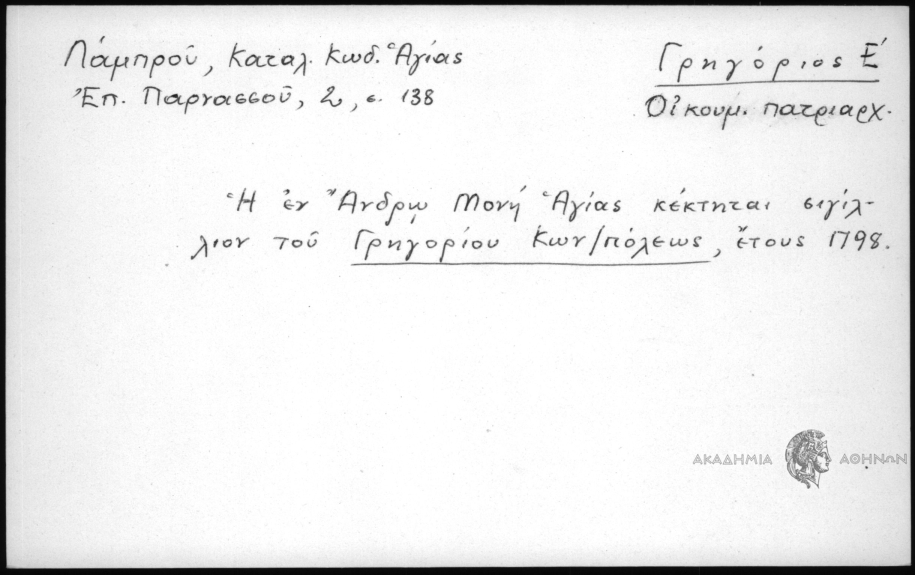 Λάμπρου, Καταλ. Κωδ. Ἁγίας
Ἐπ. Παρνασσοῦ, 2, σ. 138
Γρηγόριος Ε΄
Οἰκουμ. πατριαρχ.
Ἡ ἐν Ἄνδρῳ Μονή Ἁγίας κέκτηται σιγίλ-
λιον τοῦ Γρηγορίου Κων/πόλεως, ἔτους 1798.
ΑΚΑΔΗΜΙΑ ΑΘΗΝΩΝ